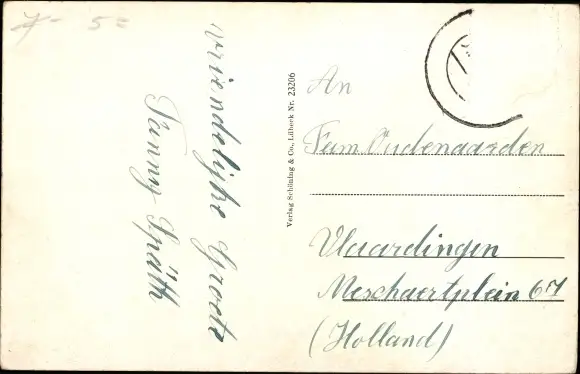 7- 5=
vriendelijke Groete
Fanny Späth
Verlag Schöning & Co., Lübeck Nr. 23206
An
Fam Oudenaarden
Vlaardingen
Meschaertplein 67
(Holland)